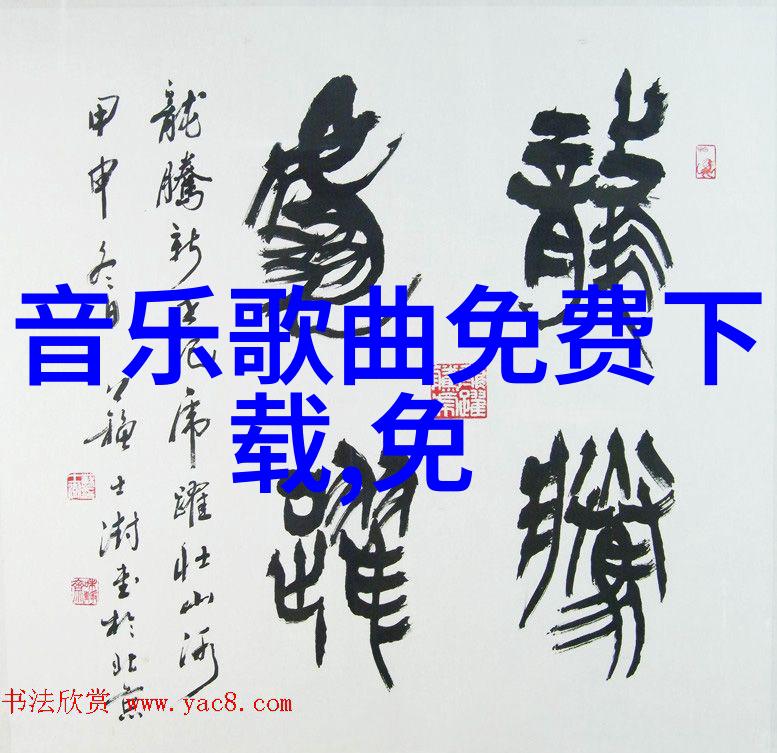 龍騰
虎躍
龍騰新
虎躍壯山河
甲申冬日
士澍書於北京
音乐歌曲免费下
载,免
书法欣赏 www.yac8.com